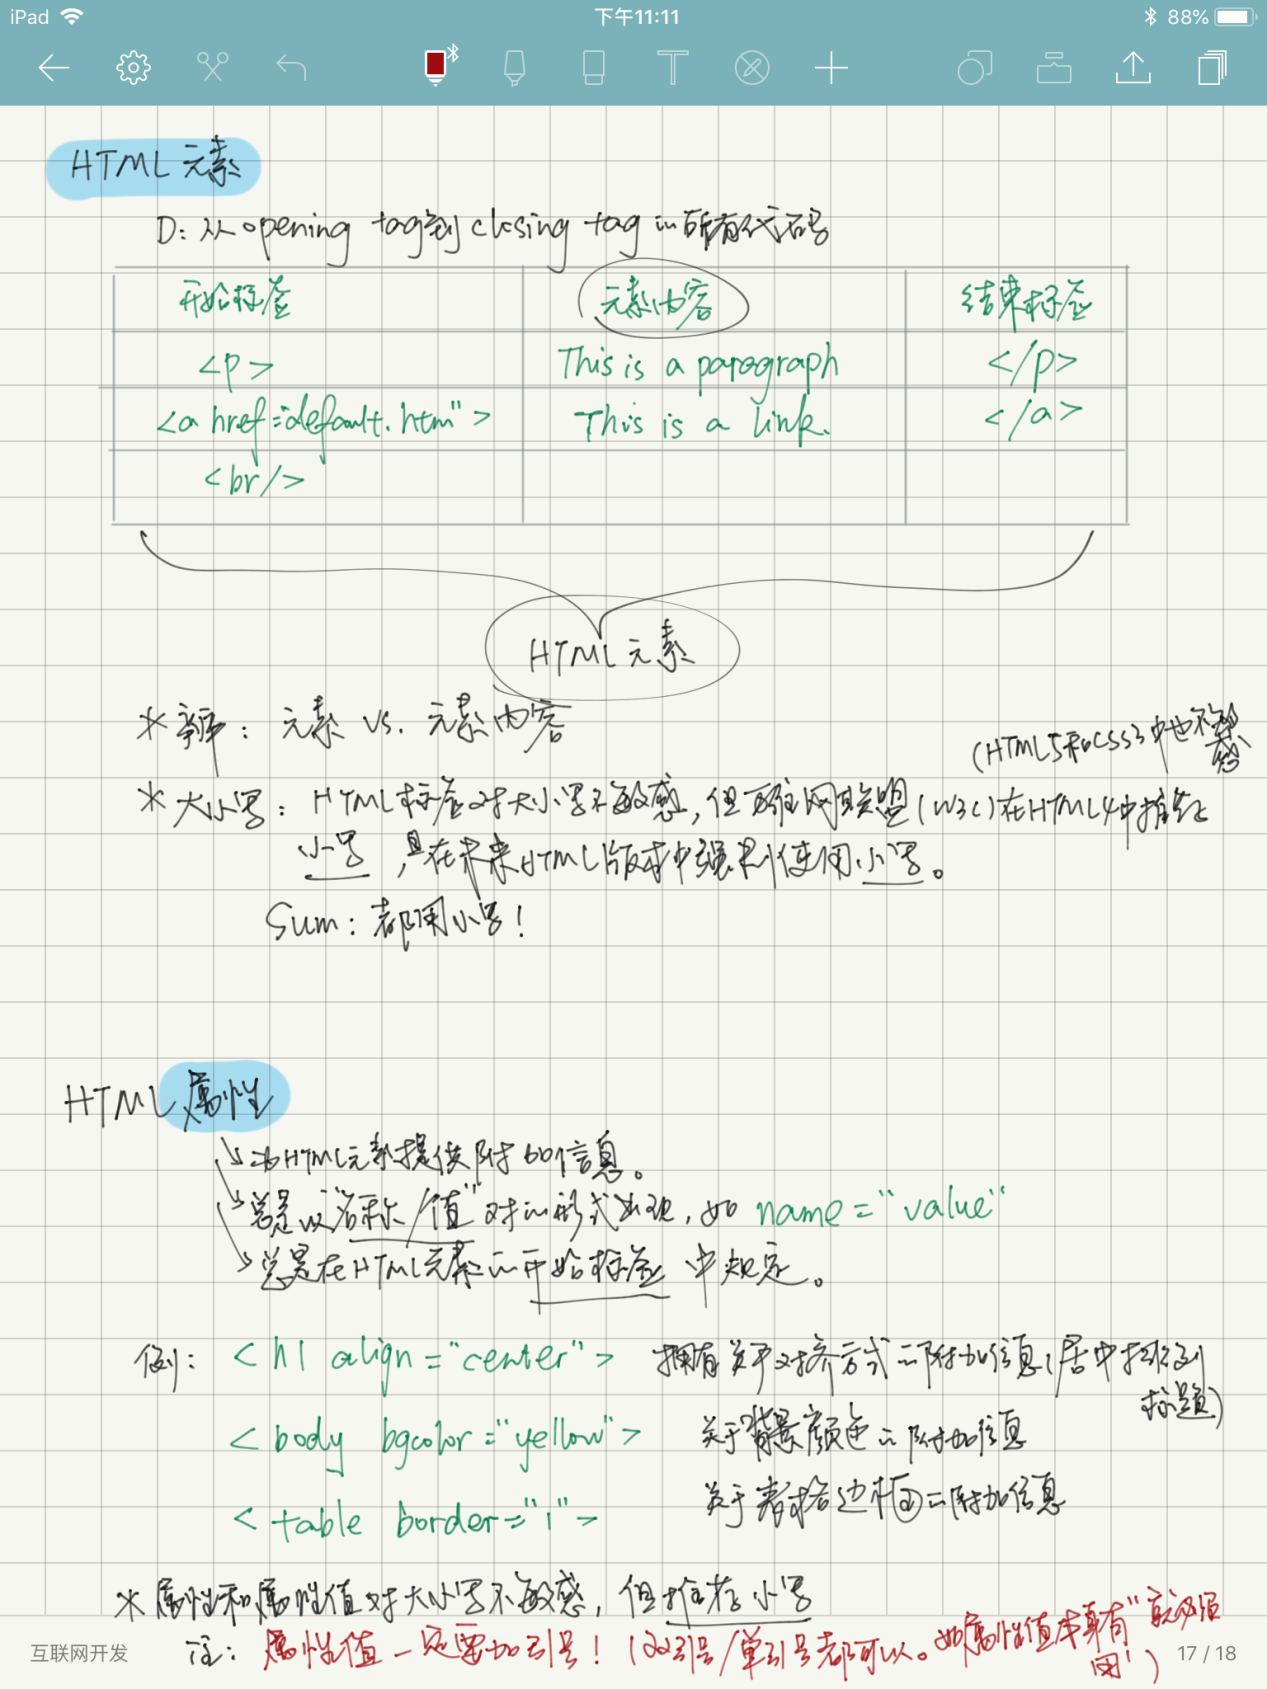 iPad 下午11:11 88%
HTML 元素
D: 从 opening tag到 closing tag的所有代码
开始标签 元素内容 结束标签
<p> This is a paragraph </p>
<a href="default.htm"> This is a link. </a>
<br/>
HTML 元素
* 辨: 元素 vs. 元素内容
(HTML5和CSS3中也不敏感
* 大小写: HTML标签对大小写不敏感, 但万维网联盟(W3C)在HTML4中推荐
小写, 且在未来HTML版本中强制使用小写。
Sum: 都用小写!
HTML 属性
为HTML元素提供附加信息。
总是以"名称/值"对的形式出现, 如 name="value"
总是在HTML元素的开始标签中规定。
例: <h1 align="center"> 拥有关于对齐方式的附加信息(居中排列
标题)
<body bgcolor="yellow"> 关于背景颜色的附加信息
<table border="1"> 关于表格边框的附加信息
* 属性和属性值对大小写不敏感, 但推荐小写
注: 属性值一定要加引号! (双引号/单引号都可以。如属性值本身有"就必须
用')
互联网开发 17 / 18